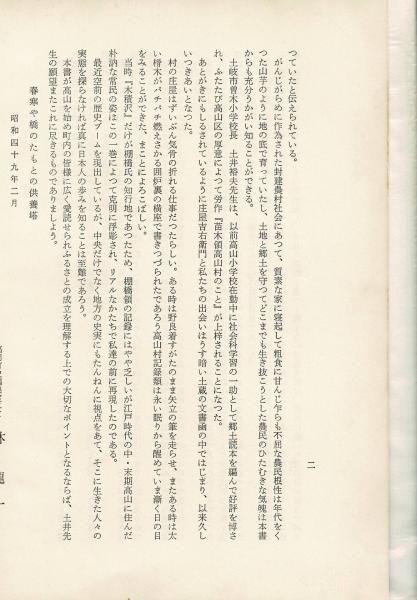 つていたと伝えられている。
がんじがらめに作為された封建農村社会にあつて、質素な家に寝起して粗食に甘んじ乍らも不屈な農民根性は年代をく
つた山芋のように地の底で育っていたし、土地と郷土を守つてどこまでも生き抜こうとした農民のひたむきな気魄は本書
からも充分うかがい知ることができる。
土岐市曽木小学校長　土井裕夫先生は、以前高山小学校在勤中に社会科学習の一助として郷土読本を編んで好評を博さ
れ、ふたたび高山区の厚意によつて労作『苗木領高山村のこと』が上梓されることになつた。
あとがきにもしるされているように庄屋吉右衛門と私たちの出会いはうす暗い土蔵の文書凾の中ではじまり、以来久し
いつきあいとなつた。
村の庄屋はずいぶん気骨の折れる仕事だつたらしい。ある時は野良着すがたのまま矢立の筆を走らせ、またある時は太
い榾木がパチパチ燃えさかる囲炉裏の横座で書きつづられたであろう高山村記録類は永い眠りから醒めていま漸く日の目
をみることができた、まことによろこばしい。
当時『木積沢』だけが棚橋氏の知行地であつたため、棚橋領の記録にはやや乏しいが江戸時代の中・末期高山に住んだ
朴訥な常民の姿はこの一巻によつて克明に浮彫され、リアルなかたちで私達の前に再現したのである。
最近空前の歴史ブームを現出しているが、中央だけでなく地方の史実にもたんねんに視点をあて、そこに生きた人々の
実態を探らなければ真に日本人の歩みを知ることは至難であろう。
本書が高山を始め町内の皆様に広く愛読せられふるさとの成立を理解する上での大切なポイントとなるならば、土井先
生の願望またこれに尽きるものでありましよう。
春寒や橋のたもとの供養塔
昭和四十九年二月
林　龍一
二